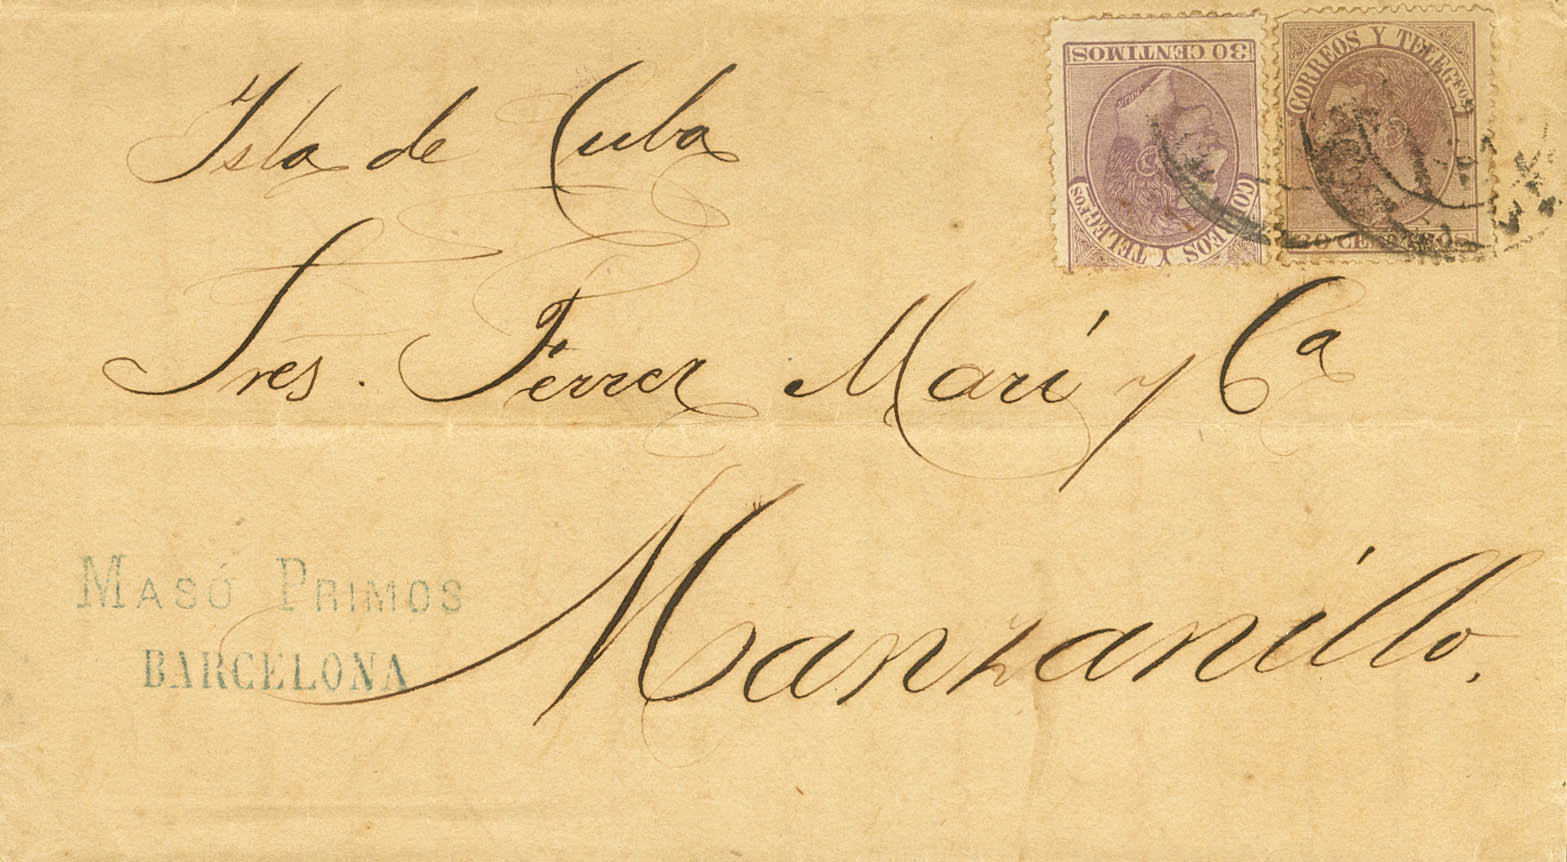 30 CENTIMOS
CORREOS Y TELEGFOS
CORREOS Y TELEGFOS
30 CENTIMOS
Isla de Cuba
Sres. Ferrer Marí y Ca
Manzanillo.
MASÓ PRIMOS
BARCELONA